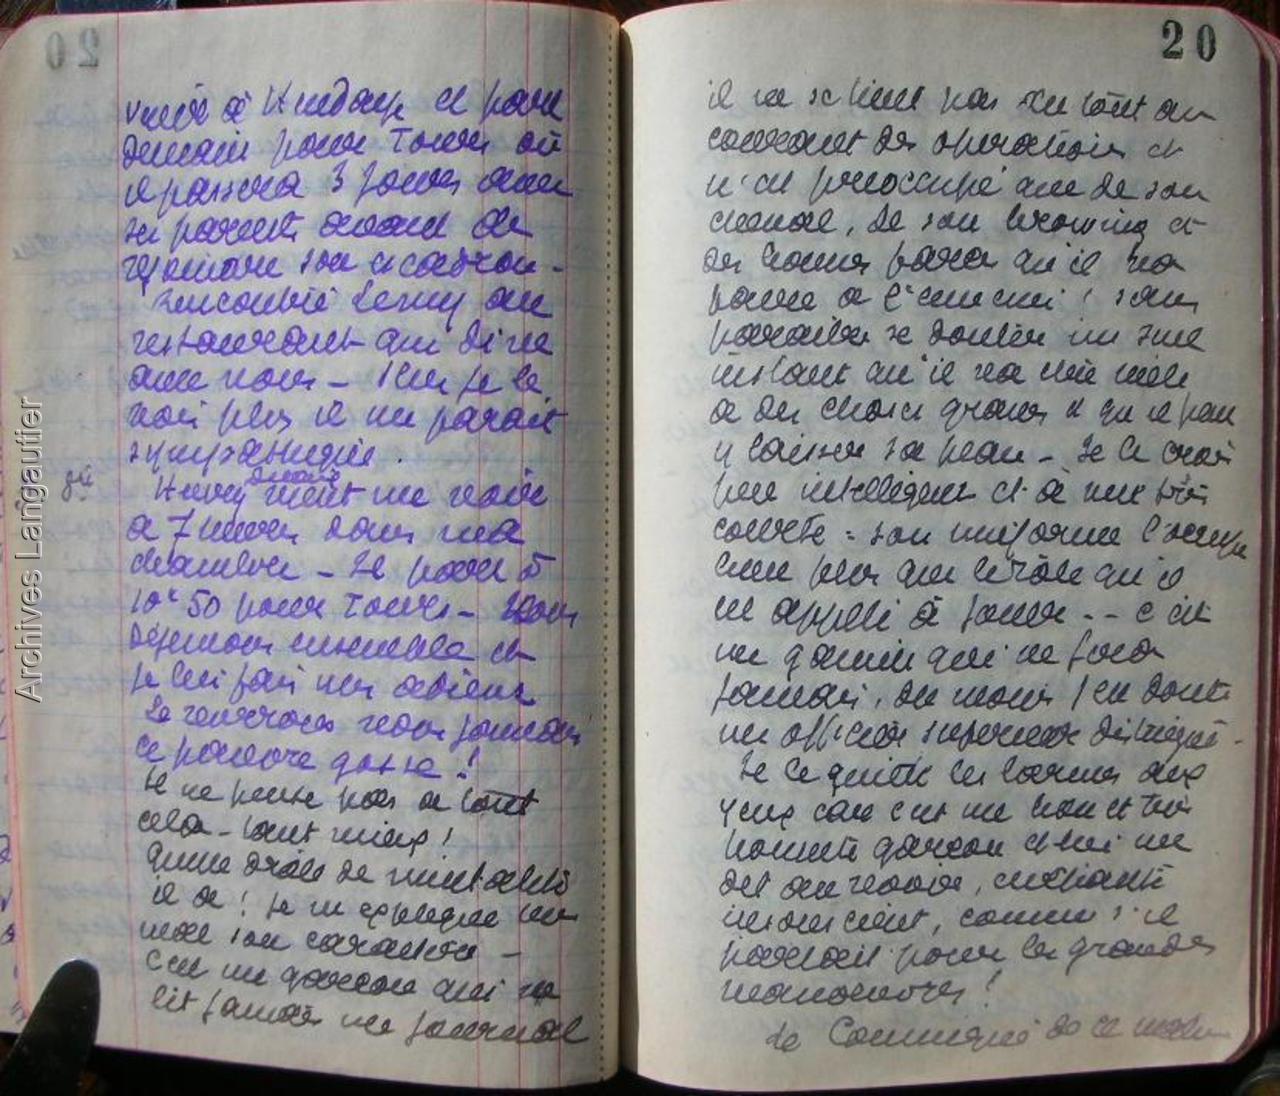 20
à Hendaye et part
demain pour Tours où
il passera 3 jours avec
ses parents avant de
rejoindre son escadron -
Rencontré Leroy au
restaurant qui dine
avec nous - Plus je le
vois plus il me parait
sympathique.
Henry Dracy vient me voir
à 7 heures dans ma
chambre - Il part à
10h50 pour Tours - Nous
déjeunons ensemble et
je lui fais mes adieux
Le reverrons nous jamais
ce pauvre gosse !
Il ne pense pas à tout
cela - tant mieux !
Quelle drôle de mentalité
il a ! Je m'explique
mal son caractère -
C'est un garçon qui ne
lit jamais un journal
20
il ne se tient pas du tout au
courant des opérations et
n'est préoccupé que de son
cheval, de son browning et
des beaux paras qu'il va
à l'ennemi ! sans
paraitre se douter un seul
instant qu'il va être mêlé
à des choses graves et qu'il peut
y laisser sa peau - Je le crois
peu intelligent et à vue très
courte : son uniforme l'occupe
bien plus que le rôle qu'il
est appelé à jouer -- C'est
un gamin qui ne fera
jamais, du moins j'en doute
un officier supérieur distingué -
Je le quitte les larmes aux
yeux car c'est un bon et très
honnête garçon et lui me
dit au revoir, enchanté
insouciant, comme s'il
partait pour les grandes
manoeuvres !
Le Communiqué de ce matin
Archives Langautier